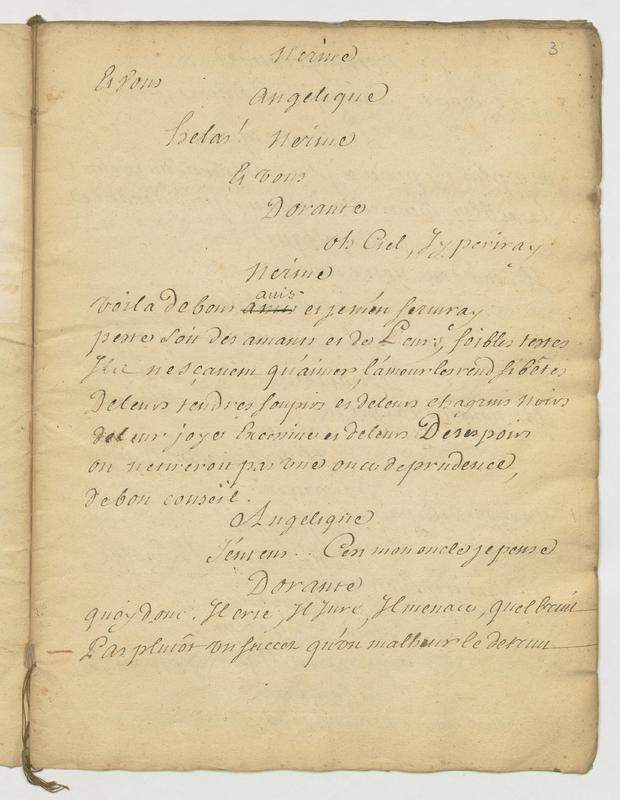 3
Nerine
Et vous
Angelique
helas! Nerine
Et vous
Dorante
oh Ciel, J'y periray
Nerine
avis
voila de bons amis et je m'en serviray
peste soit des amants et de Leurs foibles testes
Ils ne sçavent qu'aimer, l'amour les rend si bêtes
De leurs tendres soupirs et de leurs chagrins noirs
de leur joye Excessive et de leurs Desespoirs
on ne tireroit pas une once de prudence,
de bon conseil.
Angelique
J'entens.. C'est mon oncle je pense
Dorante
quoy donc. Il crie, Il Jure, Il menace, quel bruit
Pas plutôt un succez qu'un malheur le detruit